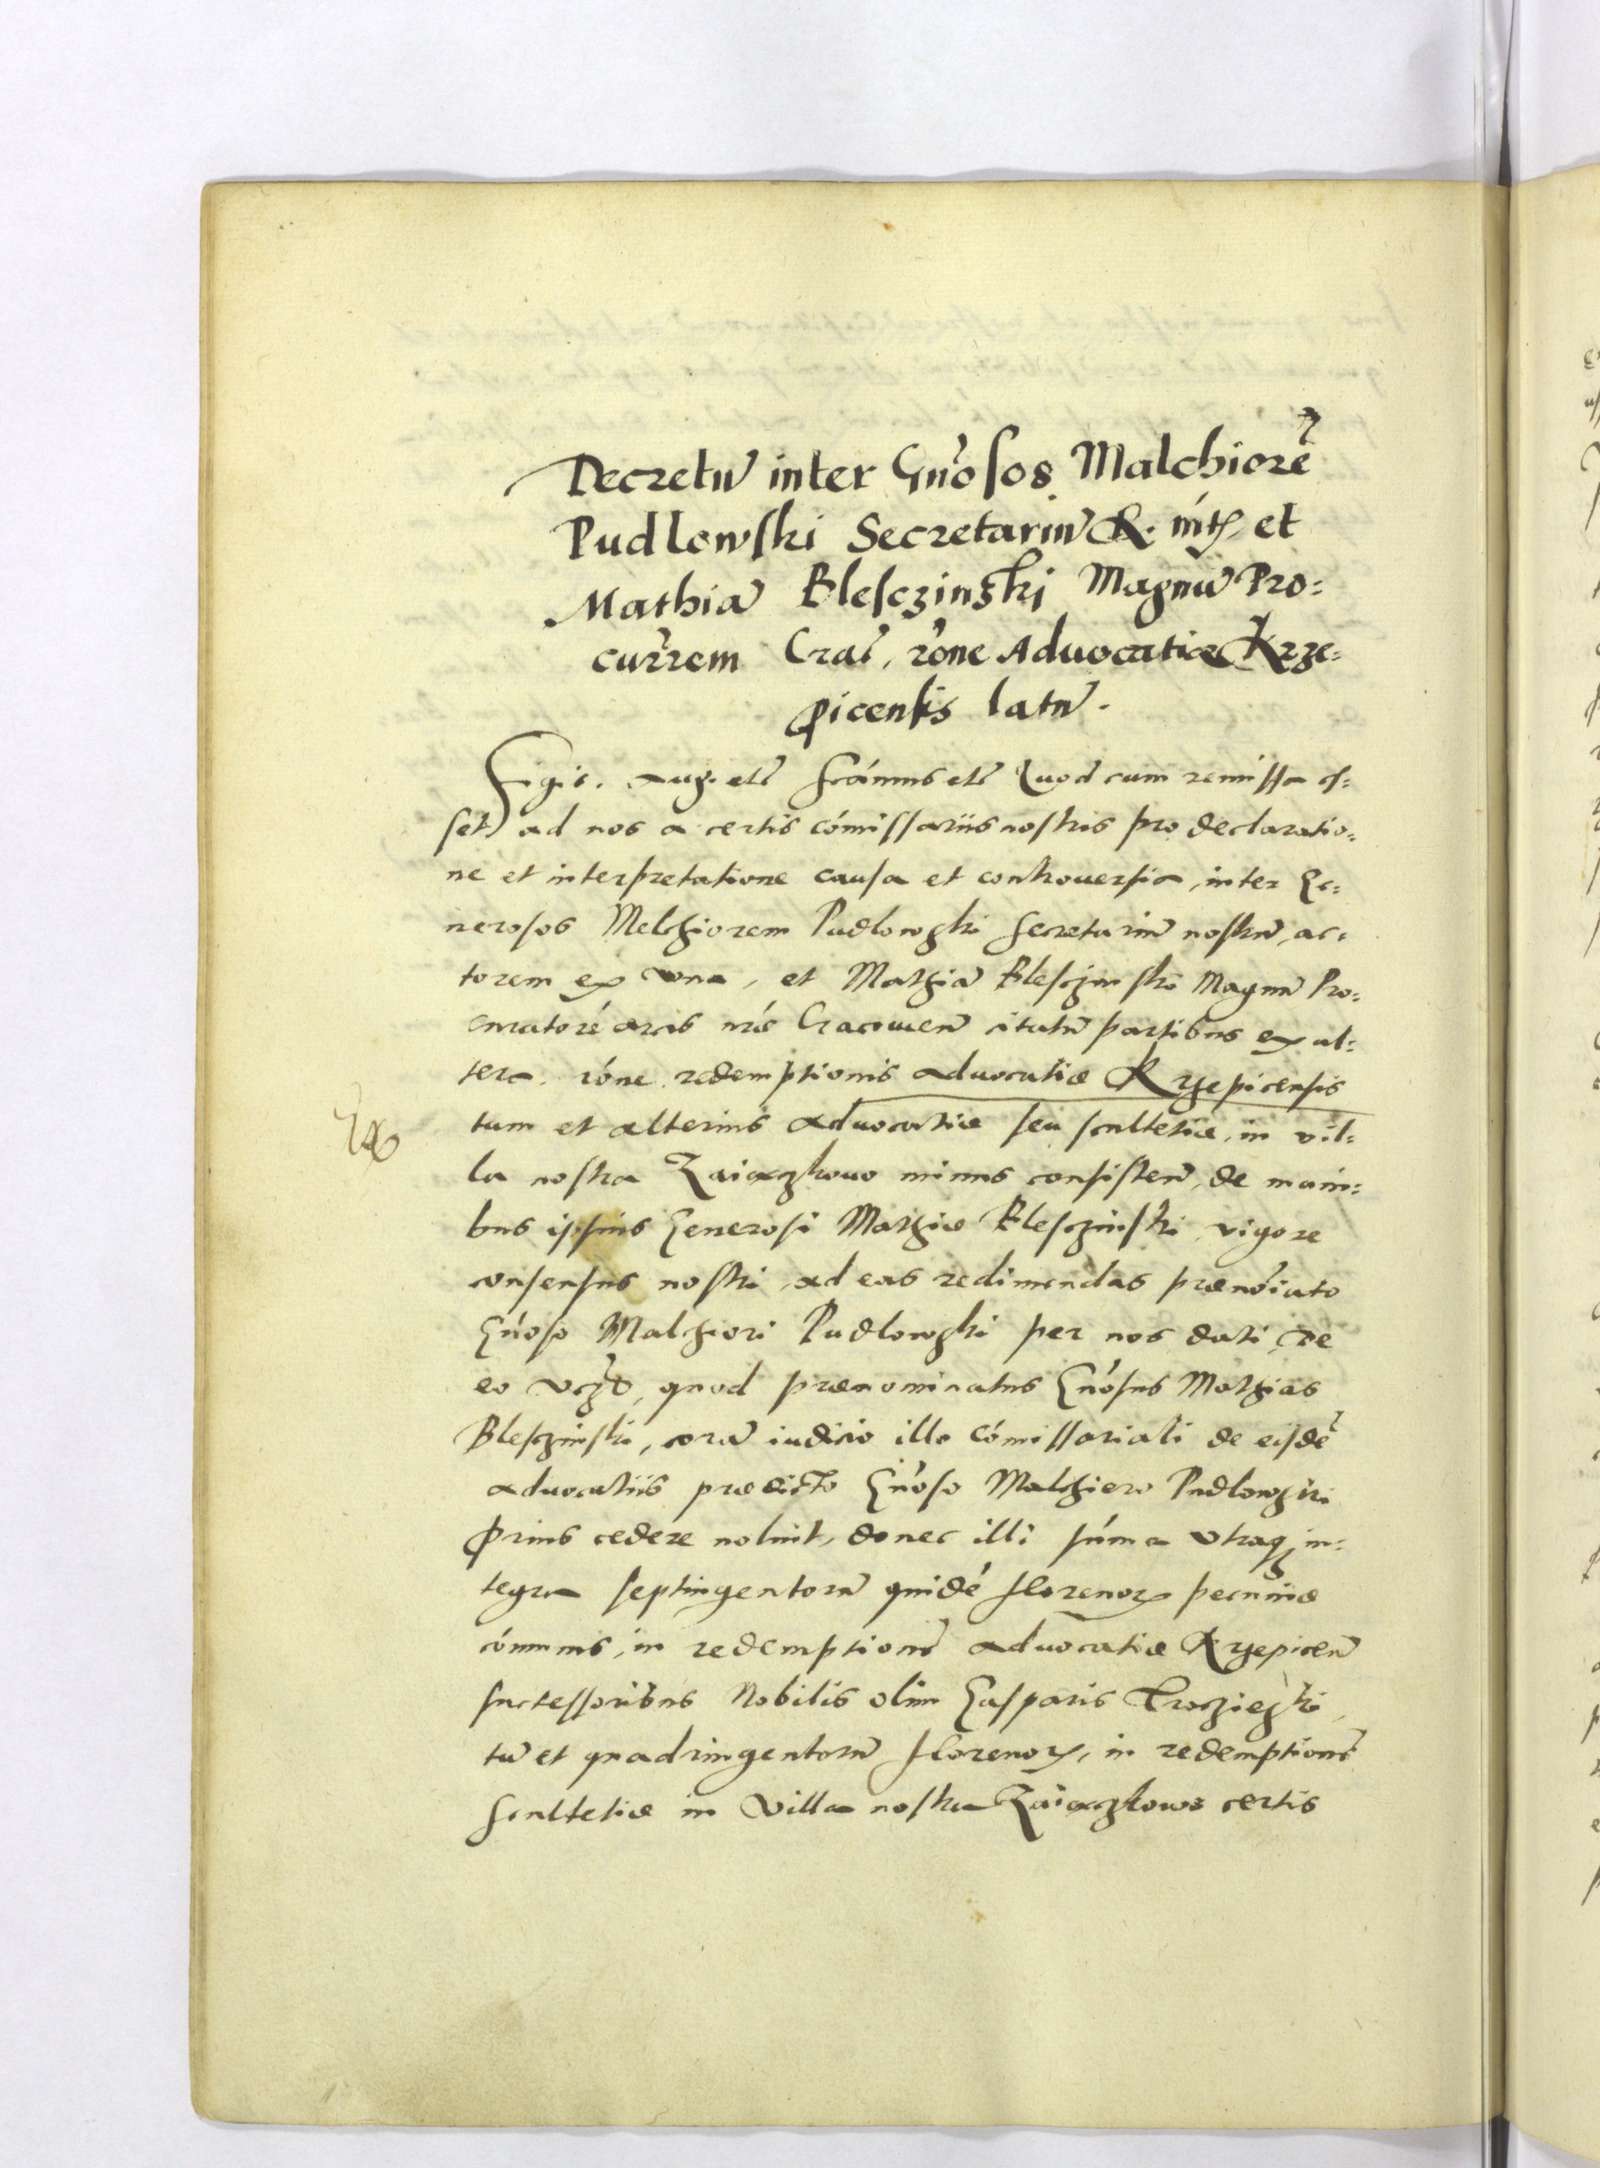 Decretū inter Gn̄osos Malchiorē
Pudlowski Secretariū R. mt̄s et
Mathiā Blesczinski Magnū Pro=
cur̄rem Crac̄, rōne Advocatiæ Krze=
picensis latū.
Sigis. Aug. etc̄ scām̄us etc̄ Quod cum remissa es=
set ad nos a certis cōmissariis nostris pro declaratio=
ne et interpretatione causa et controuersia, inter Ge=
nerosos Melchiorem Pudlowski secretariū nostrū, ac=
torem ex vna, et Mathiā Blesczinski Magnū Pro=
curatorē arcis nr̄e Cracouien̄ citatū partibus ex al=
tera. rōne redemptionis advocatiæ Krzepicensis
tum et alterius advocatiæ seu scultetiæ, in vil=
la nostra Zaiaczkowo minus consisten̄, de mani=
bus ipsius Generosi Mathiæ Blesczinski, vigore
consensus nostri, ad eas redimendas prænoīato
Gn̄oso Malchiori Pudlowski per nos dati, De
eo, quod prænominatus Gn̄osus Mathias
Blesczinski, corā iudicio illo Cōmissariali de eisdē
advocatiis prædicto Gn̄oso Malchiero Pudlowski
Prius cedere noluit, donec illi sum̄a vtraq; in=
tegra septingentorū quidē florenor̄ pecuniæ
cōmunis, in redemptionē advocatiæ Krzepicen̄
successoribus Nobilis olim Gasparis
tū et quadringentorū florenor̄, in redemptionē
Scultetiæ in Villa nostra Zaiaczkowo certis